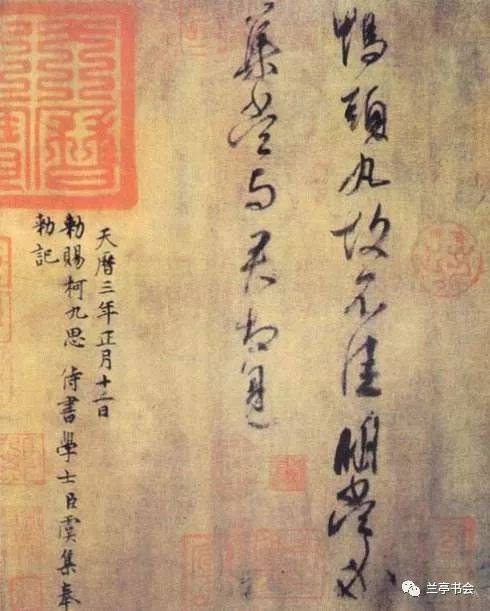 鴨頭丸故不佳明當必
集當与君相見
天曆三年正月十二日
勅賜柯九思 侍書學士臣虞集奉
勅記
兰亭书会